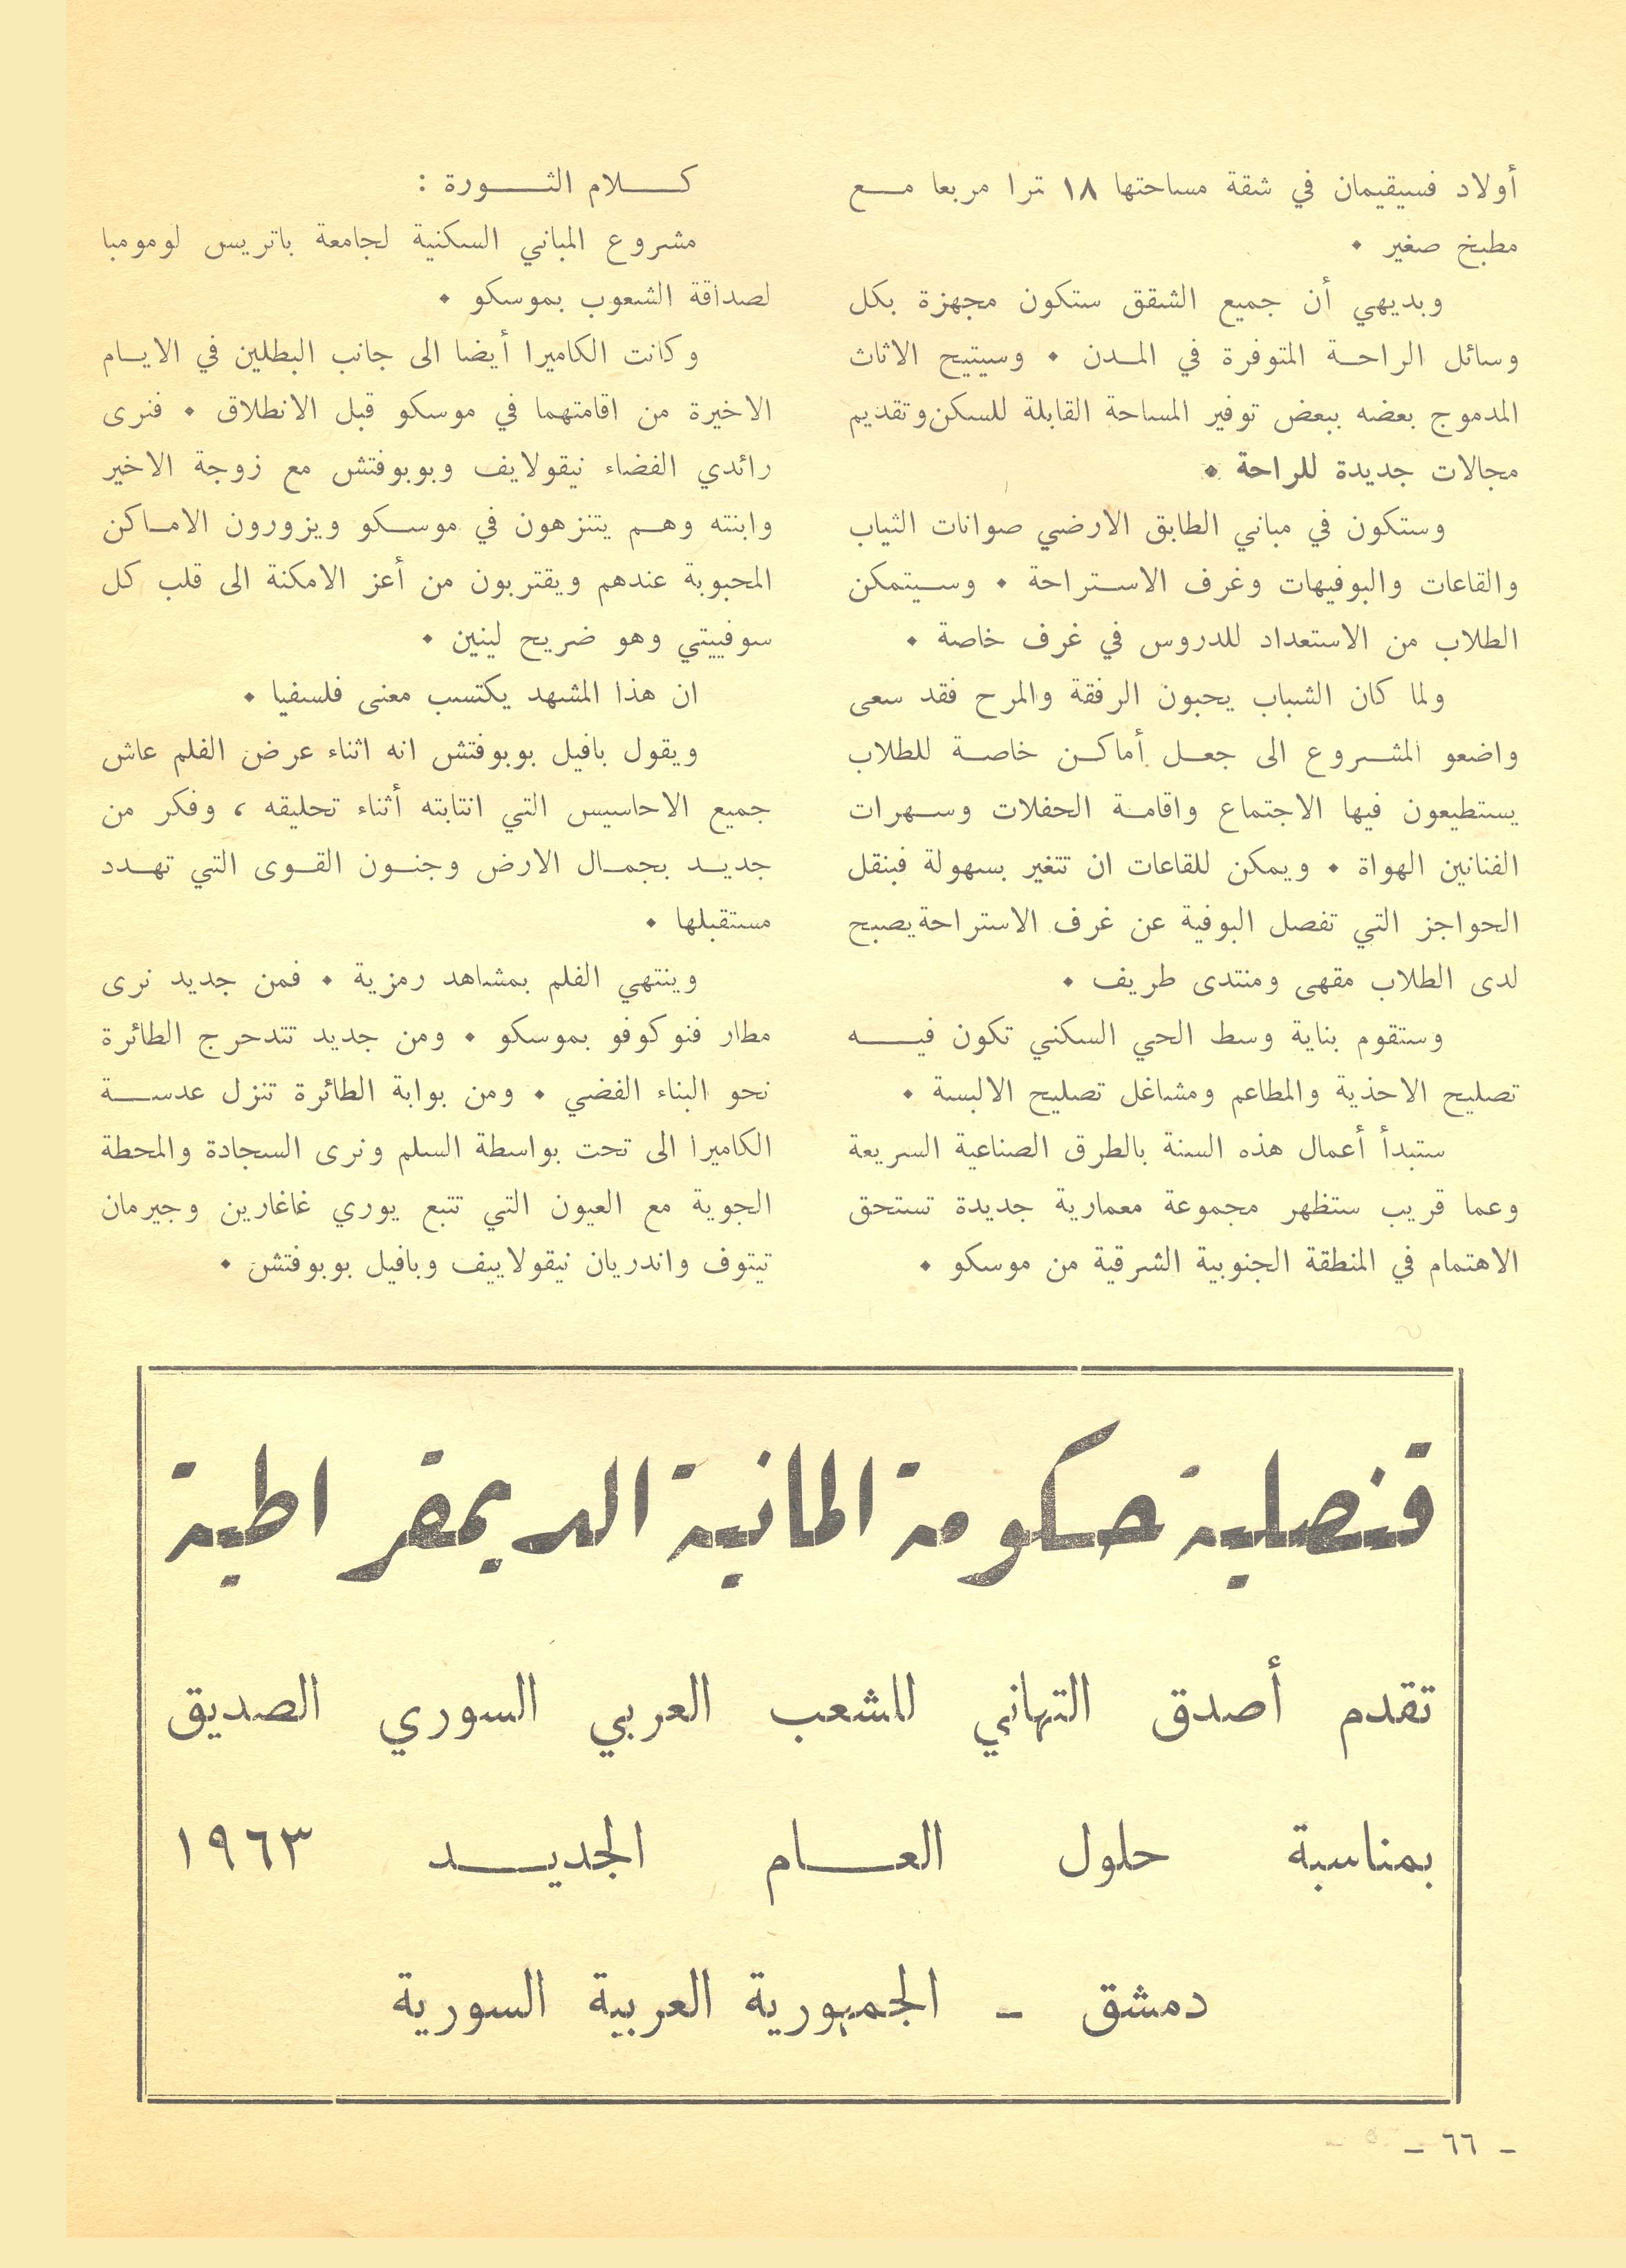 أولاد فسيقيمان في شقة مساحتها ١٨ ترا مربعا مع
مطبخ صغير •
وبديهي أن جميع الشقق ستكون مجهزة بكل
وسائل الراحة المتوفرة في المدن • وسيتيح الاثاث
المدموج بعضه ببعض توفير المساحة القابلة للسكن وتقديم
مجالات جديدة للراحة •
وستكون في مباني الطابق الارضي صوانات الثياب
والقاعات والبوفيهات وغرف الاستراحة • وسيتمكن
الطلاب من الاستعداد للدروس في غرف خاصة •
ولما كان الشباب يحبون الرفقة والمرح فقد سعى
واضعو المشروع الى جعل أماكن خاصة للطلاب
يستطيعون فيها الاجتماع واقامة الحفلات وسهرات
الفنانين الهواة • ويمكن للقاعات ان تتغير بسهولة فبنقل
الحواجز التي تفصل البوفية عن غرف الاستراحة يصبح
لدى الطلاب مقهى ومنتدى طريف •
وستقوم بناية وسط الحي السكني تكون فيه
تصليح الاحذية والمطاعم ومشاغل تصليح الالبسة •
ستبدأ أعمال هذه السنة بالطرق الصناعية السريعة
وعما قريب ستظهر مجموعة معمارية جديدة تستحق
الاهتمام في المنطقة الجنوبية الشرقية من موسكو •
كلام الثورة :
مشروع المباني السكنية لجامعة باتريس لومومبا
لصداقة الشعوب بموسكو •
وكانت الكاميرا أيضا الى جانب البطلين في الايام
الاخيرة من اقامتهما في موسكو قبل الانطلاق • فنرى
رائدي الفضاء نيقولايف وبوبوفتش مع زوجة الاخير
وابنته وهم يتنزهون في موسكو ويزورون الاماكن
المحبوبة عندهم ويقتربون من أعز الامكنة الى قلب كل
سوفييتي وهو ضريح لينين •
ان هذا المشهد يكتسب معنى فلسفيا •
ويقول بافيل بوبوفتش انه اثناء عرض الفلم عاش
جميع الاحاسيس التي انتابته أثناء تحليقه ، وفكر من
جديد بجمال الارض وجنون القوى التي تهدد
مستقبلها •
وينتهي الفلم بمشاهد رمزية • فمن جديد نرى
مطار فنوكوفو بموسكو • ومن جديد تتدحرج الطائرة
نحو البناء الفضي • ومن بوابة الطائرة تنزل عدسة
الكاميرا الى تحت بواسطة السلم ونرى السجادة والمحطة
الجوية مع العيون التي تتبع يوري غاغارين وجيرمان
تيتوف واندريان نيقولاييف وبافيل بوبوفتش •
قنصلية حكومة المانية الديمقراطية
تقدم أصدق التهاني للشعب العربي السوري الصديق
بمناسبة حلول العام الجديد ١٩٦٣
دمشق - الجمهورية العربية السورية
- ٦٦ -